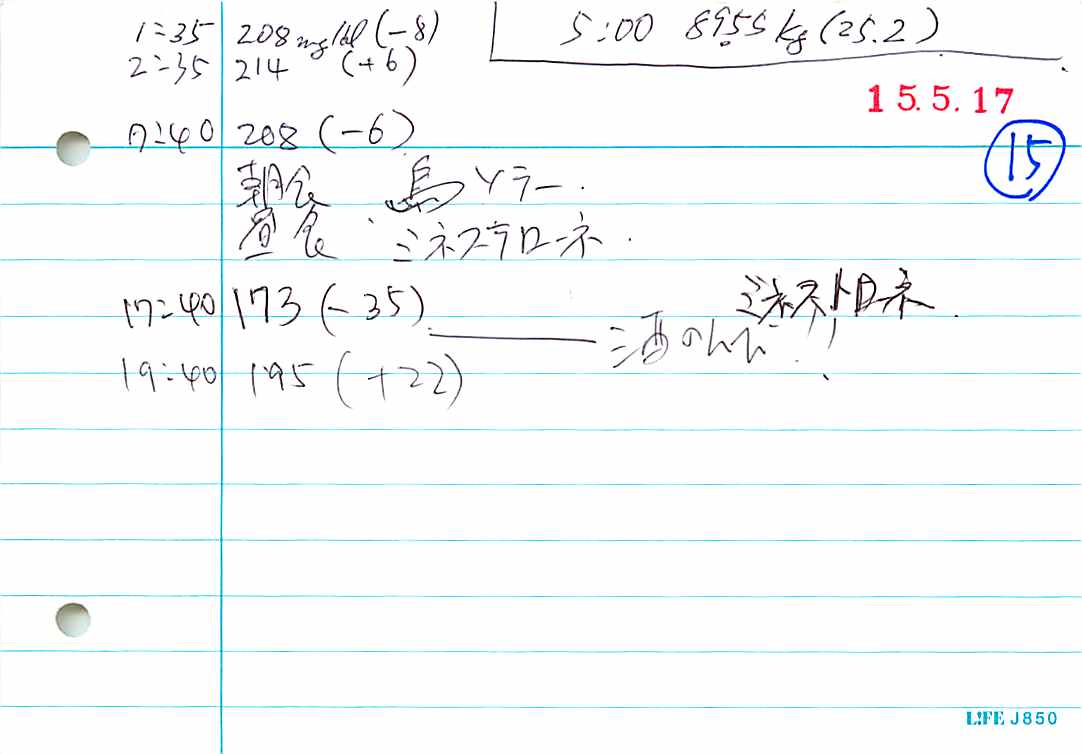 1:35 208mg/dl (-8)
5:00 89.55kg (25.2)
2:35 214 (+6)
15.5.17
7:40 208 (-6)
15
朝食 鳥ソテー.
昼食 ミネステローネ.
17:40 173 (-35)
ミネストローネ.
酒のんだ!!
19:40 195 (+22)
L!FE J850